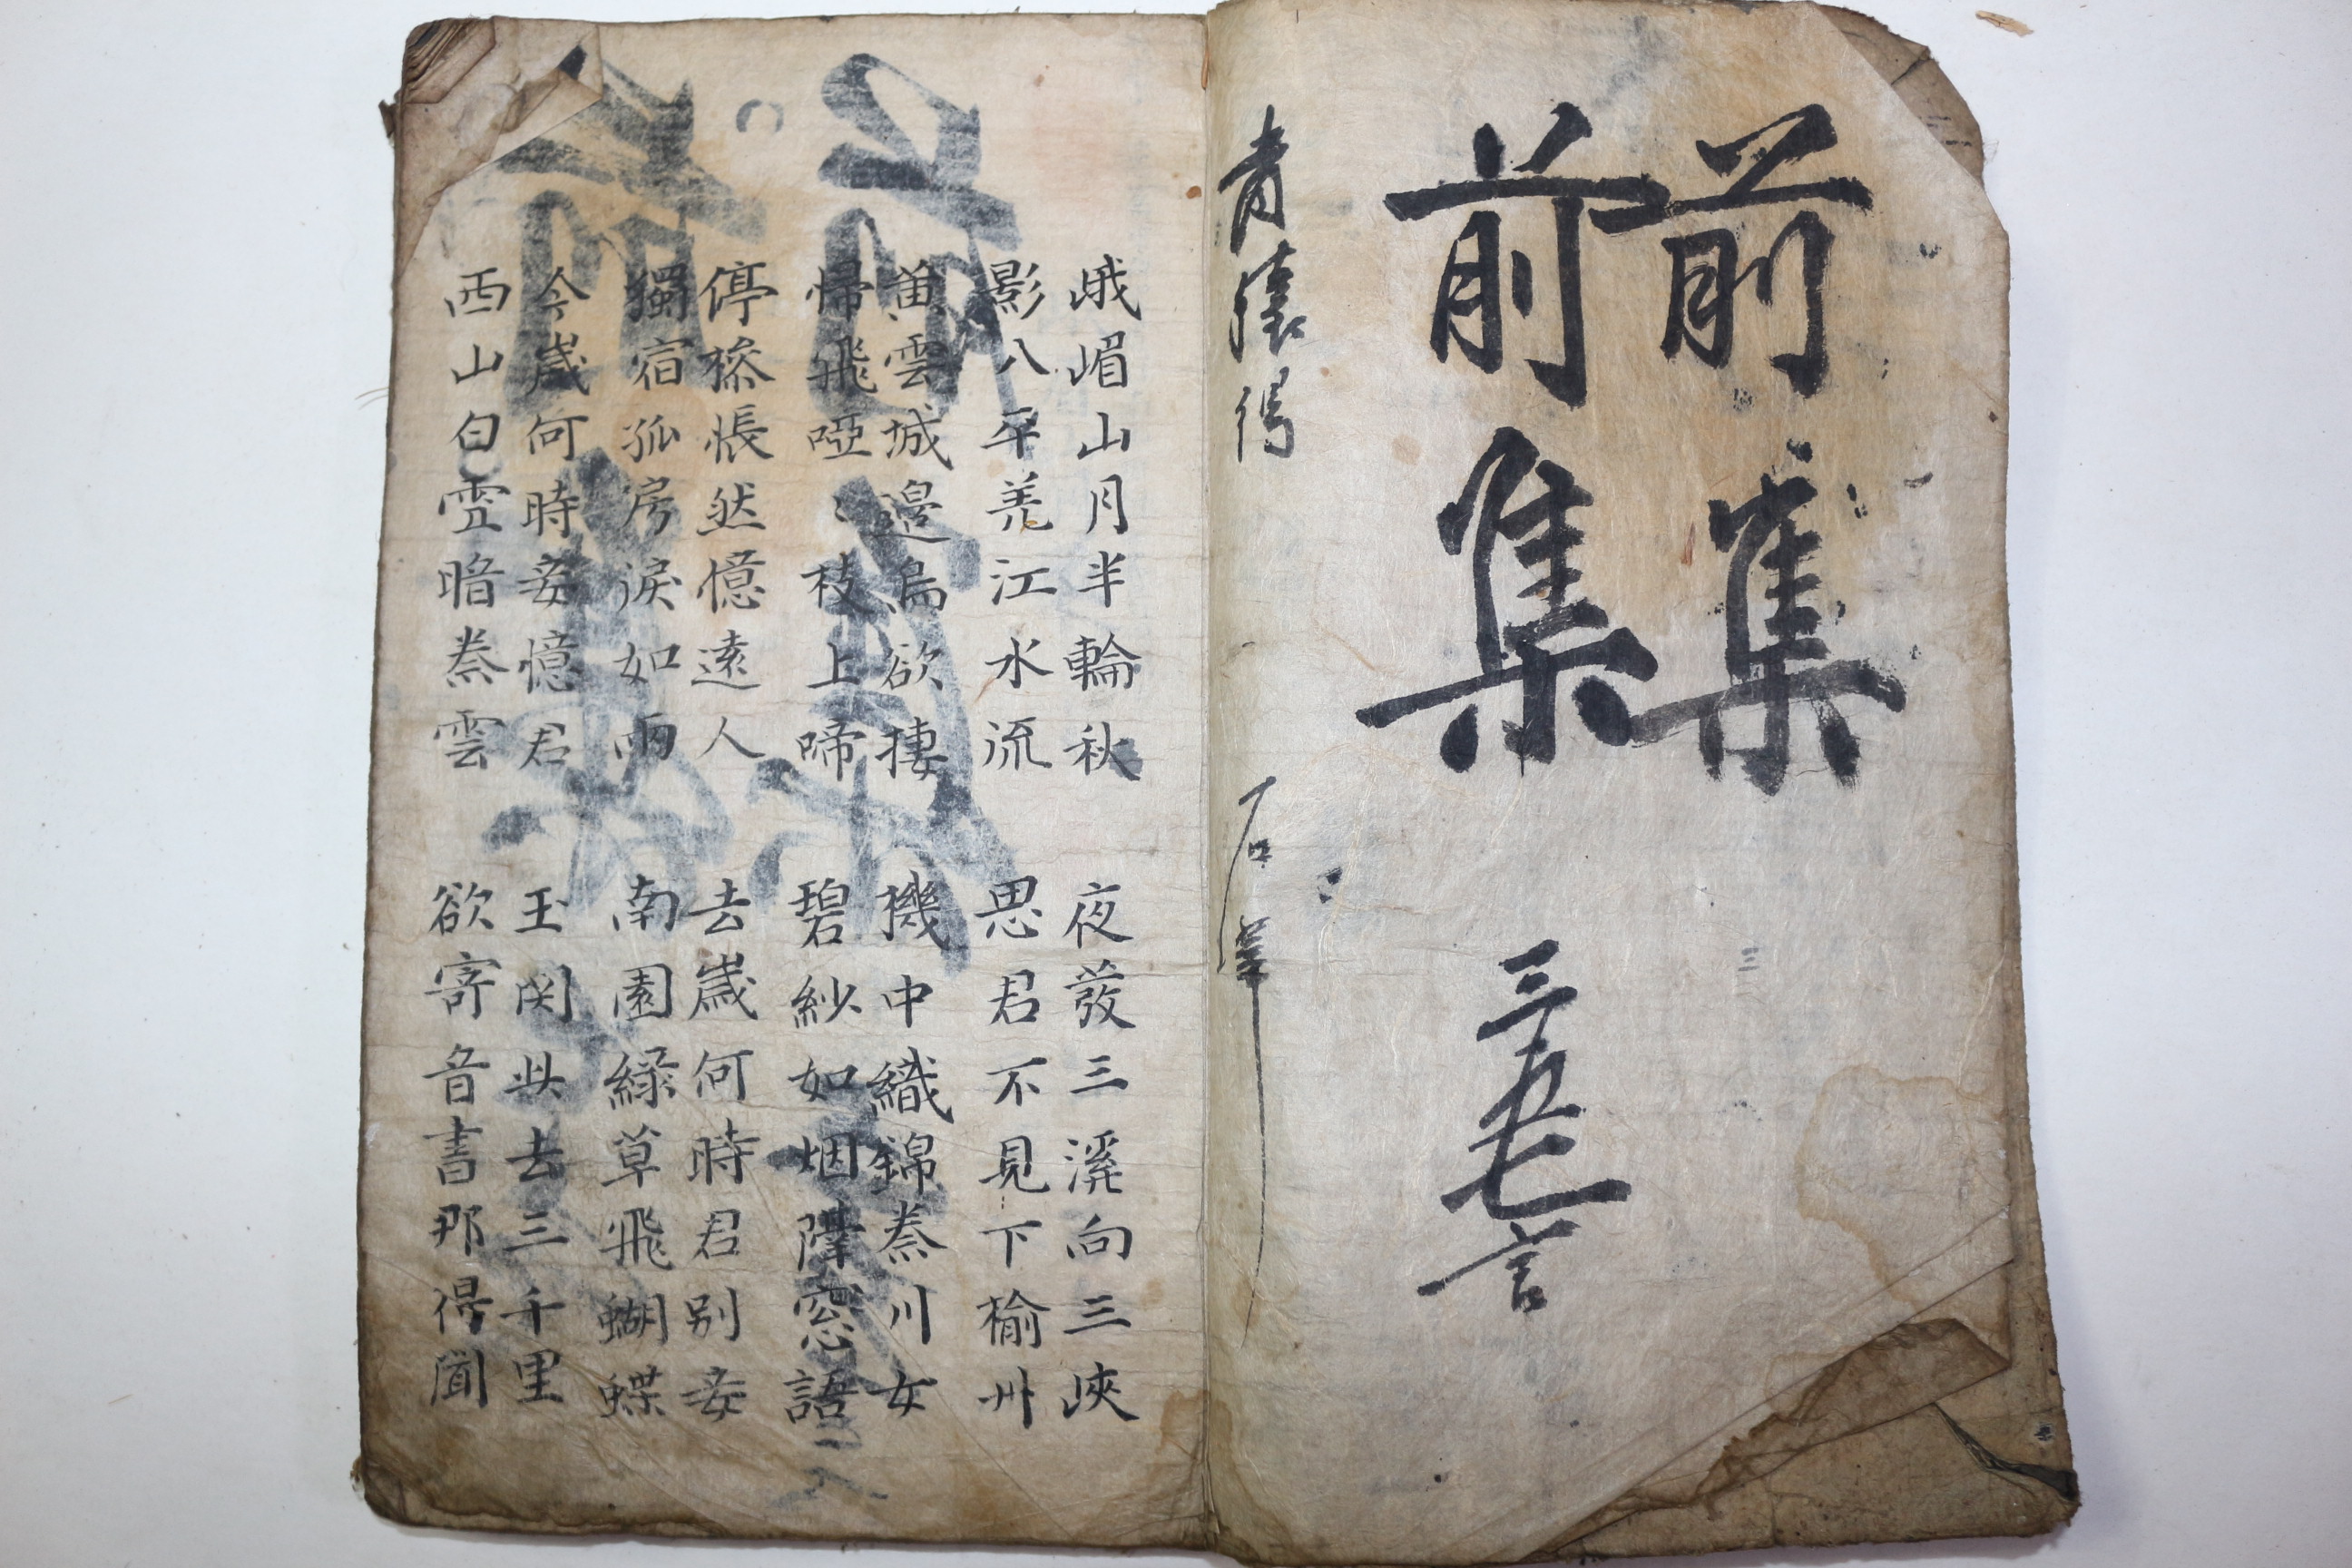 前集
前集 三五七言
青猿得 石峯
峨嵋山月半輪秋 夜發三溪向三峽
影入平羌江水流 思君不見下榆州
黃雲城邊烏欲捿 機中織錦秦川女
歸飛啞〻枝上啼 碧紗如烟隔窓語
停梭悵然憶遠人 去歲何時君別妾
獨宿孤房淚如雨 南園綠草飛蝴蝶
今歲何時妾憶君 玉関此去三千里
西山白雪暗秦雲 欲寄音書那得聞